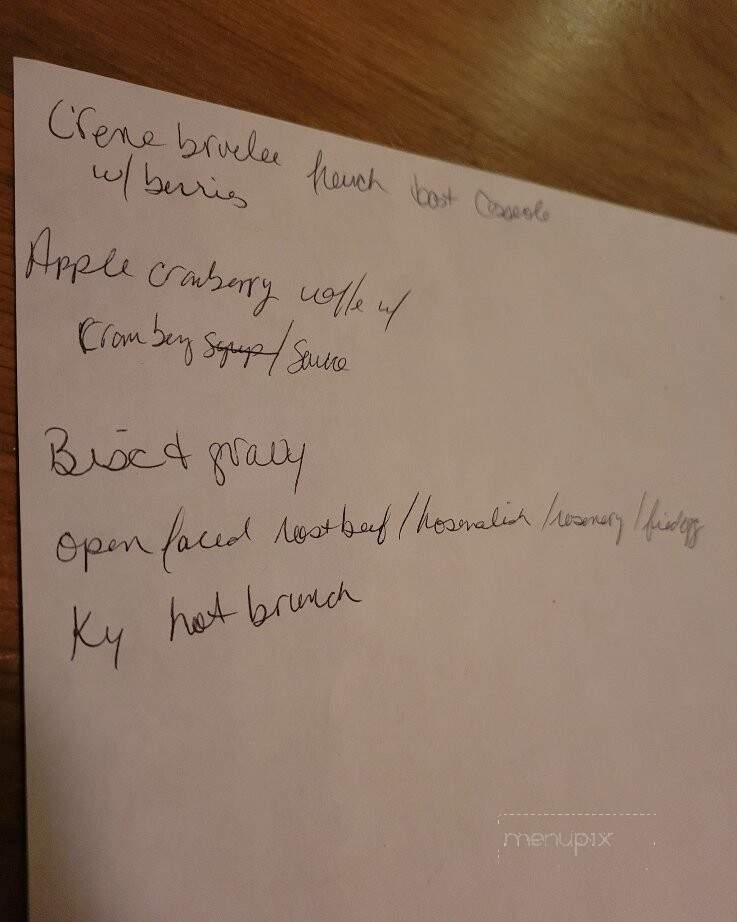 Creme brulee french toast Casserole
w/ berries
Apple cranberry waffle w/
Cranberry syrup/sauce
Bisc & gravy
open faced roast beef/horseradish/rosemary/fried egg
Ky hot brunch
menupix